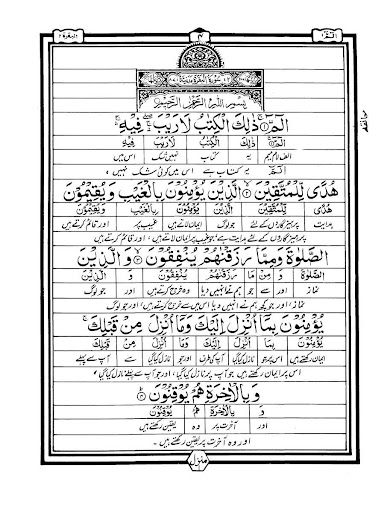 البقرة ٢
۴
الٓمّٓ ١
بِسْمِ اللّٰهِ الرَّحْمٰنِ الرَّحِیْمِ
الٓمّٓ ۚ﴿۱﴾ ذٰلِكَ الْكِتٰبُ لَا رَیْبَ ۖۛ فِیْهِ ۚۛ
الٓمّٓ ذٰلِكَ الْكِتٰبُ لَارَیْبَ فِیْهِ
الف لام میم یہ کتاب نہیں شک اس میں
الٓمّٓ یہ کتاب ہے اس میں کوئی شک نہیں ،
هُدًی لِّلْمُتَّقِیْنَ ﴿۲﴾ الَّذِیْنَ یُؤْمِنُوْنَ بِالْغَیْبِ وَ یُقِیْمُوْنَ
هُدًی لِّلْمُتَّقِیْنَ الَّذِیْنَ یُؤْمِنُوْنَ بِالْغَیْبِ وَیُقِیْمُوْنَ
ہدایت پرہیزگاروں کے لئے جو لوگ ایمان لاتے ہیں غیب پر اور قائم کرتے ہیں
پرہیزگاروں کے لئے ہدایت ہے، جو غیب پر ایمان لاتے ہیں، اور قائم کرتے ہیں
الصَّلٰوةَ وَ مِمَّا رَزَقْنٰهُمْ یُنْفِقُوْنَ ﴿۳﴾ وَالَّذِیْنَ
الصَّلٰوةَ وَ مِن مَا رَزَقْنٰهُمْ یُنْفِقُوْنَ وَ الَّذِیْنَ
نماز اور سے جو ہم نے انہیں دیا وہ خرچ کرتے ہیں اور جو لوگ
نماز اور جو کچھ ہم نے انہیں دیا اس میں سے خرچ کرتے ہیں، اور جو لوگ
یُؤْمِنُوْنَ بِمَاۤ اُنْزِلَ اِلَیْكَ وَمَاۤ اُنْزِلَ مِنْ قَبْلِكَ ۚ
یُؤْمِنُوْنَ بِمَاۤ اُنْزِلَ اِلَیْكَ وَمَاۤ اُنْزِلَ مِنْ قَبْلِكَ
ایمان رکھتے ہیں اس پر جو نازل کیا گیا آپ کی طرف اور جو نازل کیا گیا سے آپ سے پہلے
اس پر ایمان رکھتے ہیں جو آپ پر نازل کیا گیا ، اور جو آپ سے پہلے نازل کیا گیا
وَ بِالْاٰخِرَةِ هُمْ یُوْقِنُوْنَ ﴿۴﴾
وَ بِالْاٰخِرَةِ هُمْ یُوْقِنُوْنَ
اور آخرت پر وہ یقین رکھتے ہیں
اور وہ آخرت پر یقین رکھتے ہیں ۔
منزل